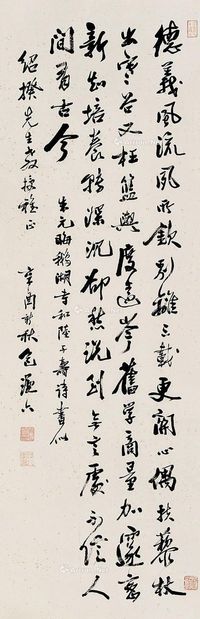 德義風流夙所欽別離三載更關心偶扶藜杖
出寒谷又枉籃輿度遠岑舊學商量加邃密
新知培養轉深沉却愁說到無言處不信人
間有古今 朱元晦鵝湖寺和陸子壽詩書似
紹揆先生教授雅正
辛酉新秋包謙六